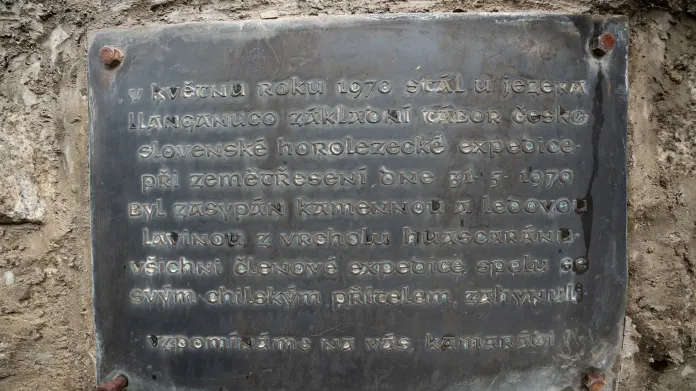 v květnu roku 1970 stál u jezera
llanganuco základní tábor česko
slovenské horolezecké expedice.
při zemětřesení dne 31.5.1970
byl zasypán kamennou a ledovou
lavinou z vrcholu huascaránu.
všichni členové expedice, spolu se
svým chilským přítelem, zahynuli
vzpomínáme na vás, kamarádi!